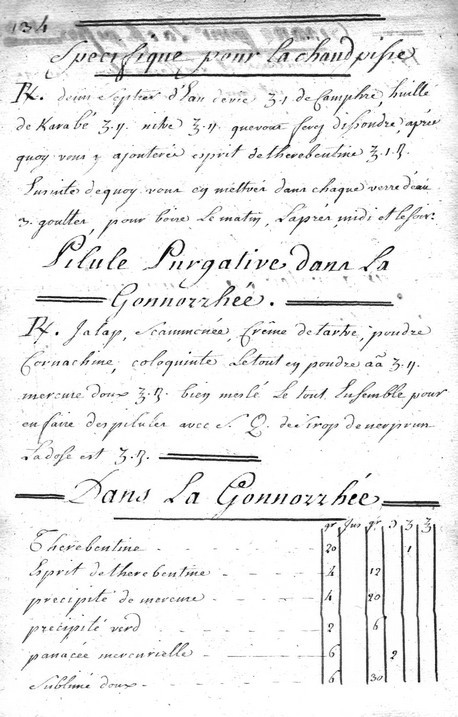 134
Specifique pour la chaudpisse
℞. demi Septier d'Eau de vie ʒ.i. de Camphre, huille
de Karabé ʒ.ij. nitre ʒ.ij. que vous ferez dissoudre, apres
quoy vous y ajouterés esprit de therebentine ʒ.i.ß.
Ensuite de quoy vous en mettrés dans chaque verre d'eau
3. gouttes, pour boire Le matin, L'aprés midi et le soir.
Pilule Purgative dans La
Gonnorrhée.
℞. Jalap, Scammonée, Crême de tartre, poudre
Cornachine, coloquinte Le tout en poudre aã ʒ.ij.
mercure doux ʒ.ß. bien meslé Le tout Ensemble pour
en faire des pilules avec S. Q. de sirop de nerprun
La dose est ʒ.ß.
Dans La Gonnorrhée
gr Jus gr. ℈ ʒ ℥
Therebentine 20 1
Esprit de therebentine 4 12
precipité de mercure 4 20
precipité verd 2 6
panacée mercurielle 6 2
Sublimé doux 6 30